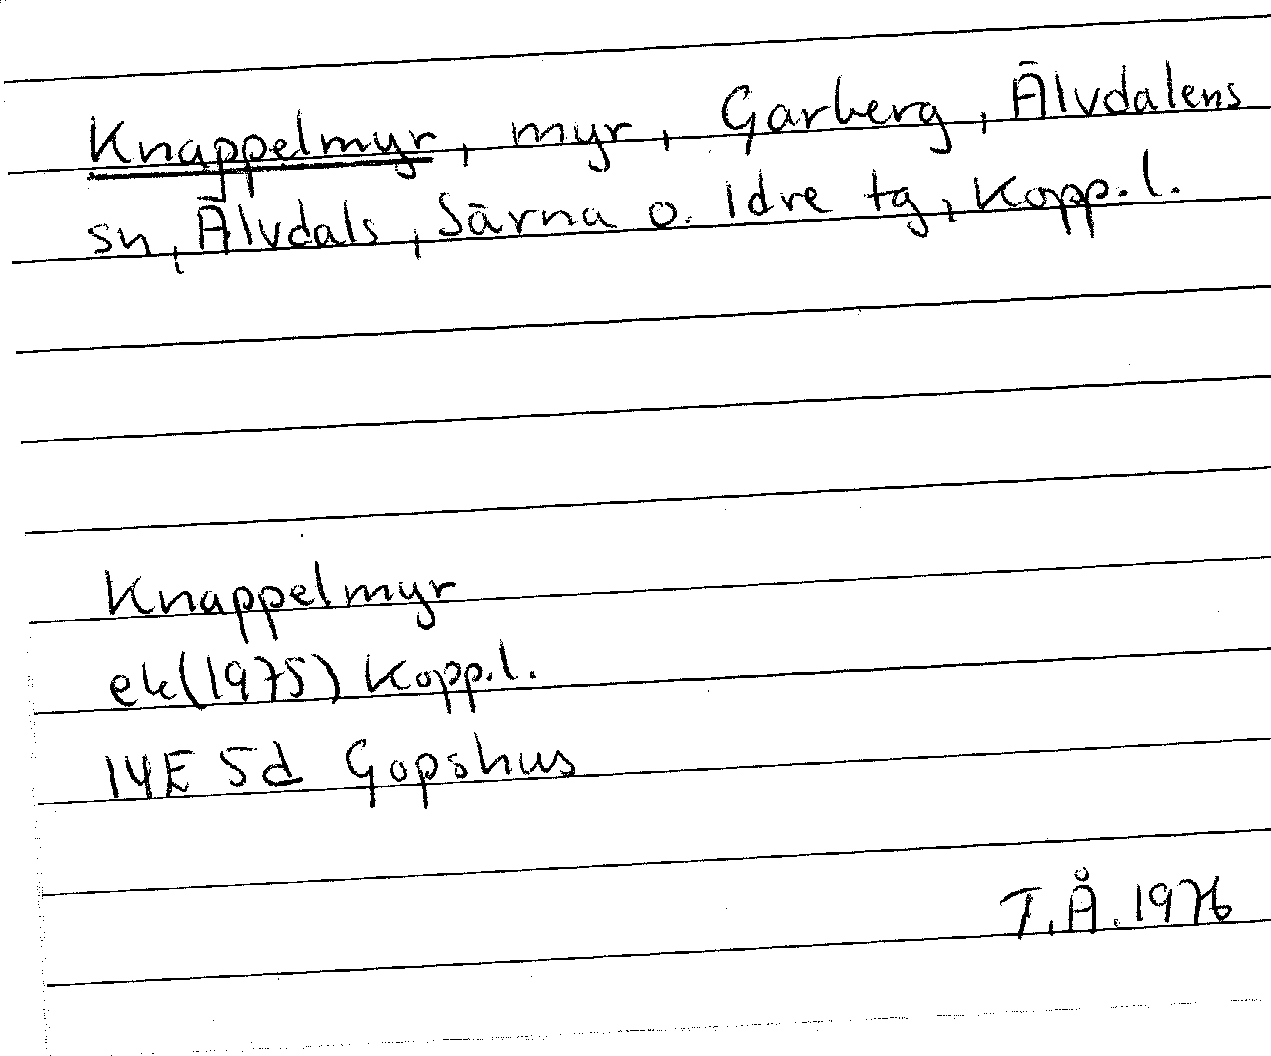 Knappelmyr, myr, Garberg, Älvdalens
sn, Älvdals, Särna o. Idre tg, Kopp.l.
Knappelmyr
ek(1975) Kopp.l.
14E 5d Gopshus
T.Å.1976